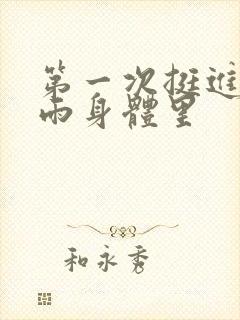 第一次挺進
雨身體里
和永秀